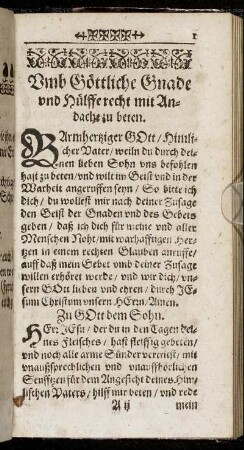 1
Vmb Göttliche Gnade
vnd Hülffe recht mit An-
dacht zu beten.
BArmhertziger GOtt / Himli-
cher Vater / weiln du durch dei-
nen lieben Sohn vns befohlen
hast zu beten / vnd wilt im Geist vnd in der
Warheit angeruffen seyn / So bitte ich
dich / du wollest mir nach deiner Zusage
den Geist der Gnaden vnd des Gebets
geben / daß ich dich für meine vnd aller
Menschen Noht / mit warhafftigen Her-
tzen in einem rechten Glauben anruffe /
auff daß mein Gebet vmb deiner Zusage
willen erhöret werde / vnd wir dich / vn-
sern GOtt lieben vnd ehren / durch JE-
sum Christum vnsern HErrn / Amen.
Zu GOtt dem Sohn.
HErr JEsu / der du in den Tagen dei-
nes Fleisches / hast fleissig gebeten /
vnd noch alle arme Sünder vertritest / mit
vnaußsprechlichen vnd vnauffhörlichen
Seufftzen für dem Angesicht deines Him-
lischen Vaters / hilff mir beten / vnd rede
A ij mein